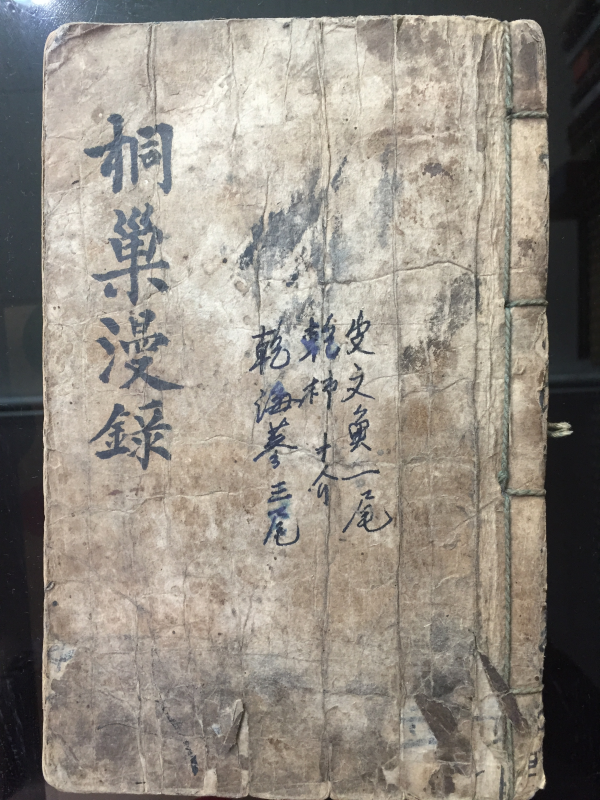 皮文魚一尾
乾柿十介
乾海蔘三尾
桐巢漫錄